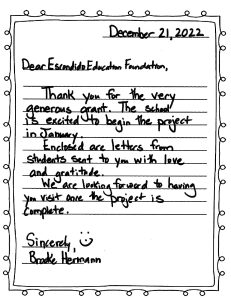 December 21, 2022
Dear Escondido Education Foundation,
Thank you for the very
generous grant. The school
is excited to begin the project
in January.
Enclosed are letters from
students sent to you with love
and gratitude.
We are looking forward to having
you visit once the project is
complete.
Sincerely,
Brooke Hermann